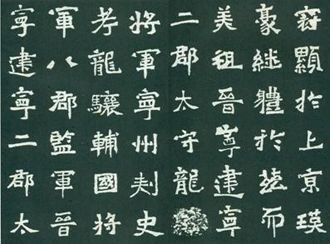 冠顯於上京瑛
豪繼體於茲而
美祖晉寧建寧
二郡太守龍
將軍寧州刾史
考龍驤輔國將
軍八郡監軍晉
寧建寧二郡太